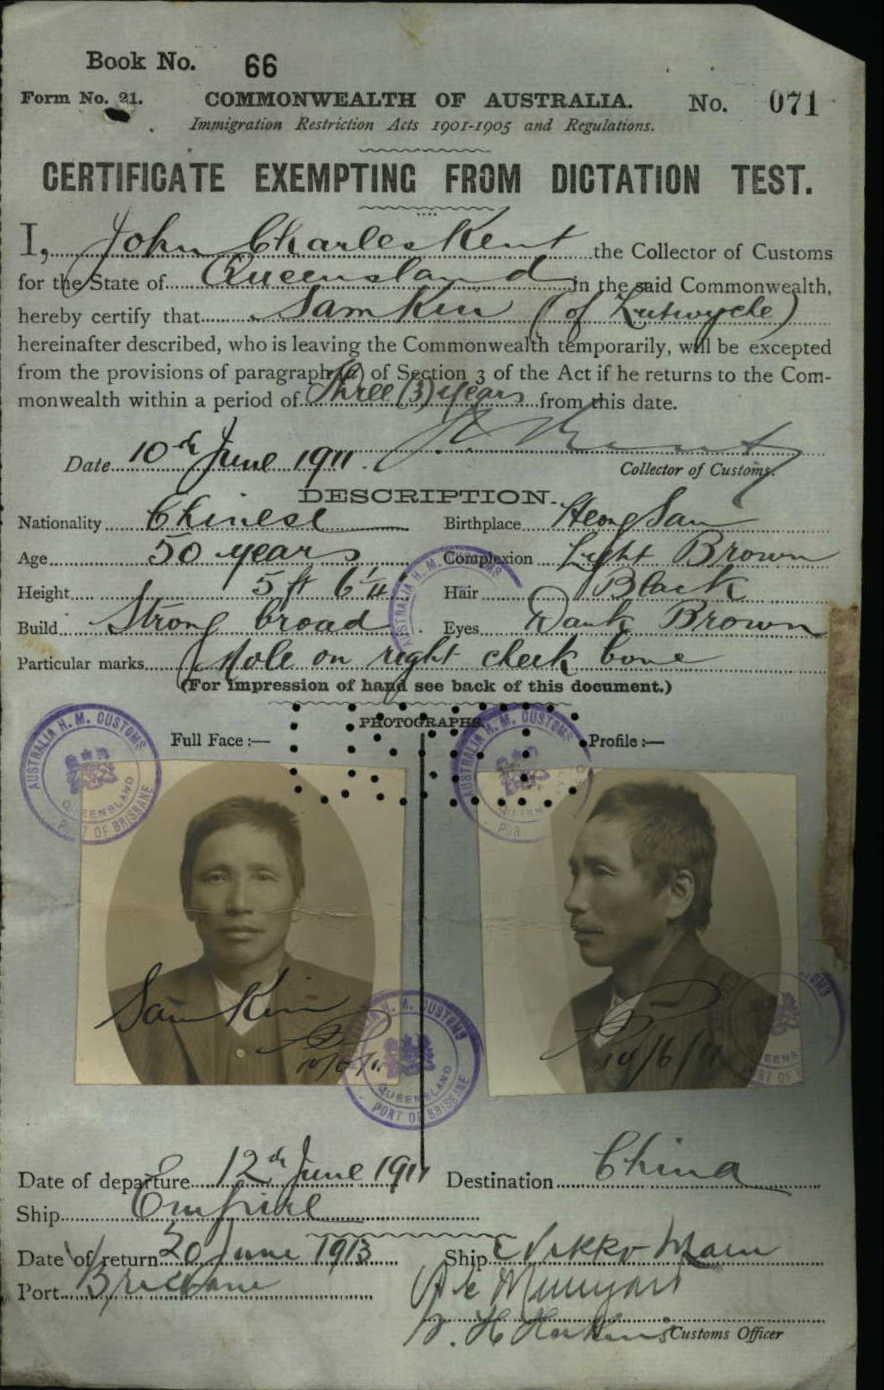 Book No. 66
Form No. 21. COMMONWEALTH OF AUSTRALIA. No. 071
Immigration Restriction Acts 1901-1905 and Regulations.
CERTIFICATE EXEMPTING FROM DICTATION TEST.
I, John Charles Kent the Collector of Customs
for the State of Queensland in the said Commonwealth,
hereby certify that Sam Kin (of Lutwyche)
hereinafter described, who is leaving the Commonwealth temporarily, will be excepted
from the provisions of paragraph (a) of Section 3 of the Act if he returns to the Com-
monwealth within a period of Three (3) years from this date.
Date 10th June 1911.
Collector of Customs.
DESCRIPTION.
Nationality Chinese Birthplace Heong San
Age 50 years Complexion Light Brown
Height 5 ft 6 Hair Black
Build Strong broad Eyes Dark Brown
Particular marks Mole on right cheek bone
(For impression of hand see back of this document.)
PHOTOGRAPHS.
Full Face :— Profile :—
AUSTRALIA H. M. CUSTOMS
QUEENSLAND
PORT OF BRISBANE
Sam Kin
10/6/11
10/6/11
H. M. CUSTOMS
QUEENSLAND
PORT OF BRISBANE
Date of departure 12th June 1911 Destination China
Ship Empire
Date of return 20 June 1913 Ship Nikko Maru
Port Brisbane
Customs Officer